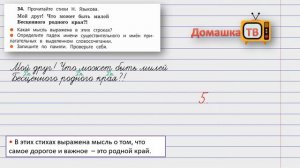 34. Прочитайте стихи Н. Языкова.
Мой друг! Что может быть милей
Бесценного родного края?!
• Какая мысль выражена в этих строках?
• Определите падеж имени существительного и имён прилагательных в выделенном словосочетании.
• Запишите по памяти. Проверьте себя.
Домашка
ТВ
Мой друг! Что может быть милей
Бесценного родного края?!
5
• В этих стихах выражена мысль о том, что
самое дорогое и важное – это родной край.